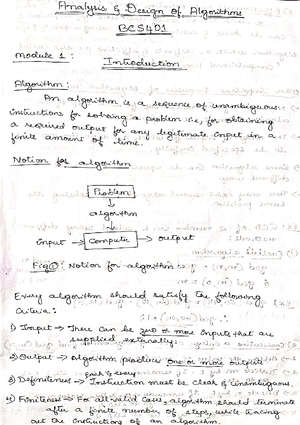 Analysis & Design of Algorithms
BCS401
Module 1 :
Introduction
Algorithm :
An algorithm is a sequence of unambiguous
instructions for solving a problem ie, for obtaining
a required output for any legitimate input in a
finite amount of time.
Notion for algorithm
Problem
algorithm
input → Computer → output
Fig ① : Notion for algorithm
Every algorithm should satisfy the following
criteria :
1) Input → There can be zero or more inputs that are
supplied externally.
2) Output → algorithm produces one or more outputs
Each & every
3) Definiteness → Instruction must be clear & unambiguous.
4) Finiteness → For all valid cases, algorithm should terminate
after a finite number of steps, while tracing
out the instructions of an algorithm.